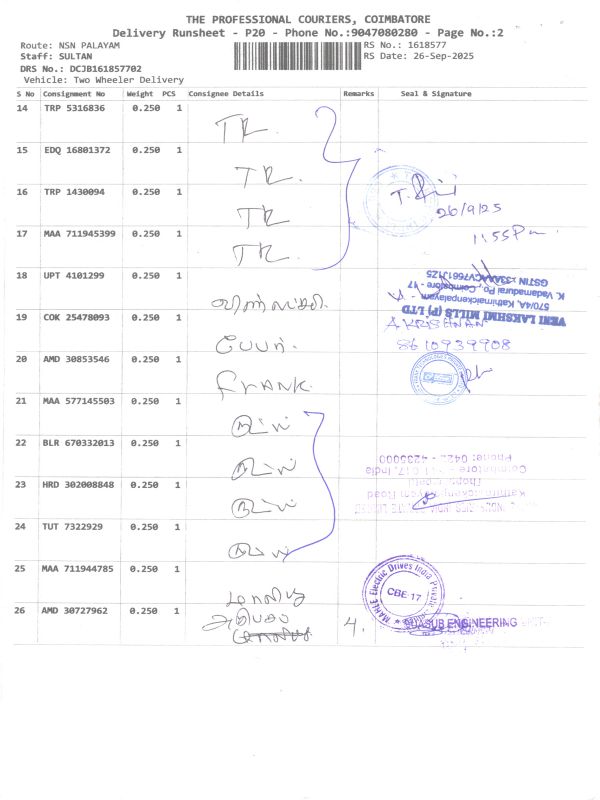 THE PROFESSIONAL COURIERS, COIMBATORE
Delivery Runsheet - P20 - Phone No.:9047080280 - Page No.:2
Route: NSN PALAYAM
RS No.: 1618577
Staff: SULTAN
RS Date: 26-Sep-2025
DRS No.: DCJB161857702
Vehicle: Two Wheeler Delivery
S No Consignment No Weight PCS Consignee Details Remarks Seal & Signature
14 TRP 5316836 0.250 1 TR
15 EDQ 16801372 0.250 1 TR
16 TRP 1430094 0.250 1 TR
17 MAA 711945399 0.250 1 TR
26/9/25
1:55 Pm
18 UPT 4101299 0.250 1
VENI LAKSHMI MILLS (P) LTD
570/4A, Kathirnaickenpalayam
K. Vadamadurai Po, Coimbatore - 17
GSTIN :33AAACV7661J1Z5
19 COK 25478093 0.250 1 பேப்பர்
A KRISHNAN
8610939908
20 AMD 30853546 0.250 1 FRANK
21 MAA 577145503 0.250 1
22 BLR 670332013 0.250 1
Phone: 0422 - 4235000
23 HRD 302008848 0.250 1
24 TUT 7322929 0.250 1
25 MAA 711944785 0.250 1
MAHLE Electric Drives India Private
CBE-17
26 AMD 30727962 0.250 1 4.
ENGINEERING